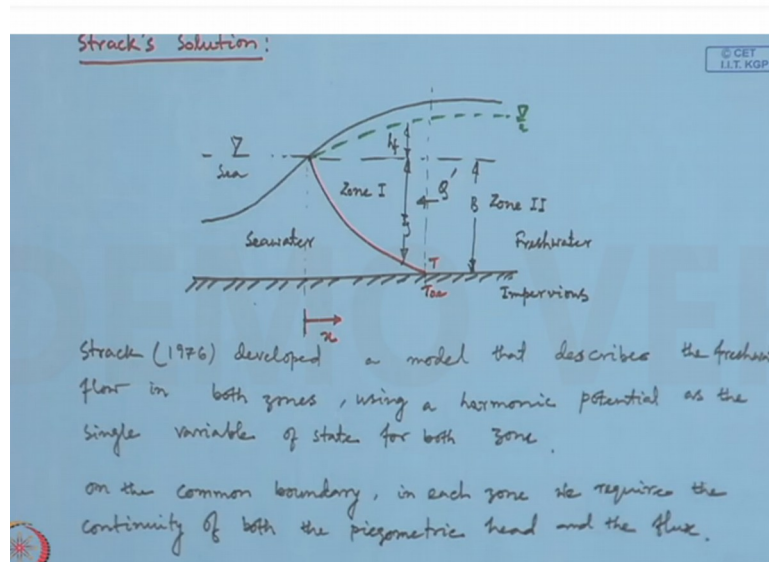 Strack's Solution:
© CET
I.I.T. KGP
Sea
hf
Zone I
Q'
B
Zone II
Seawater
Freshwater
T
Toe
Impervious
x
Strack (1976) developed a model that describes the freshw
flow in both zones, using a harmonic potential as the
single variable of state for both zone.
on the common boundary, in each zone we require the
continuity of both the piezometric head and the flux.